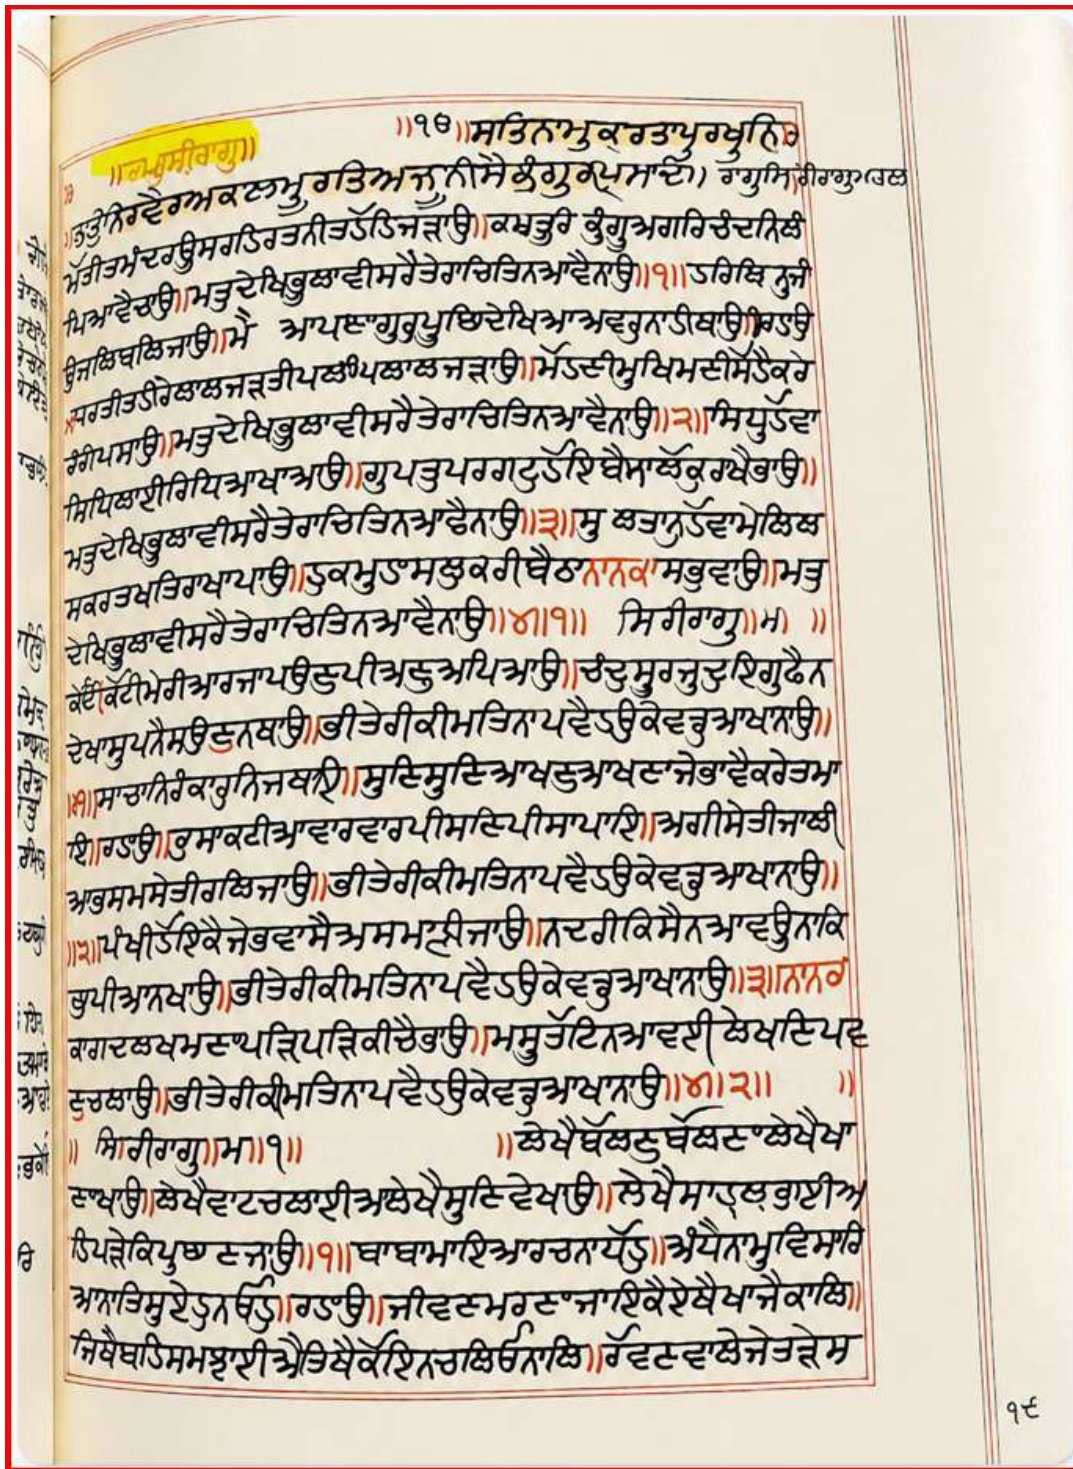 ॥੧ੳ॥ਸਤਿਨਾਮੁਕਰਤਾਪੁਰਖੁਨਿ
ਨਿਰਵੈਰਅਕਲਮੂਰਤਿਅਜੂਨੀਸੈਭੰਗੁਰਪ੍ਰਸਾਦਿ॥
ਮੋਤੀਤਮੰਦਰਊਸਰਹਿਰਤਨੀਤਹੋਹਿਜੜਾਉ॥ਕਸਤੂਰਿ ਕੁੰਗੂਅਗਰਿਚੰਦਨਿਲੀ
ਪਿਆਵੈਚਾਉ॥ਮਤੁਦੇਖਿਭੂਲਾਵੀਸਰੈਤੇਰਾਚਿਤਿਨਆਵੈਨਾਉ॥੧॥ ਹਰਿਬਿਨੁਜੀ
ਉਜਲਿਬਲਿਜਾਉ॥ਮੈ ਆਪਣਾਗੁਰੁਪੂਛਿਦੇਖਿਆਅਵਰੁਨਾਹੀਥਾਉ॥ਰਹਾਉ
ਧਰਤੀਤਹੀਰੇਲਾਲਜੜਤੀਪਲੰਘਿਲਾਲਜੜਾਉ॥ਮੋਹਣੀਮੁਖਿਮਣੀਸੋਹੈਕਰੇ
ਰੰਗਿਪਸਾਉ॥ਮਤੁਦੇਖਿਭੂਲਾਵੀਸਰੈਤੇਰਾਚਿਤਿਨਆਵੈਨਾਉ॥੨॥ਸਿਧੁਹੋਵਾ
ਸਿਧਿਲਾਈਰਿਧਿਆਖਾਆਉ॥ਗੁਪਤੁਪਰਗਟੁਹੋਇਬੈਸਾਲੋਕੁਰਾਖੈਭਾਉ॥
ਮਤੁਦੇਖਿਭੂਲਾਵੀਸਰੈਤੇਰਾਚਿਤਿਨਆਵੈਨਾਉ॥੩॥ਸੁ ਲਤਾਨੁਹੋਵਾਮੇਲਿਲ
ਸਕਰਤਖਤਿਰਾਖਾਪਾਉ॥ਹੁਕਮੁਹਾਸਲੁਕਰੀਬੈਠਾਨਾਨਕਾਸਭੁਵਾਉ॥ਮਤੁ
ਦੇਖਿਭੂਲਾਵੀਸਰੈਤੇਰਾਚਿਤਿਨਆਵੈਨਾਉ॥੪॥੧॥ ਸਿਰੀਰਾਗੁ॥ਮ॥ ॥
ਕੋਟੀਕੋਟੀਮੇਰੀਆਰਜਾਪਉਣੁਪੀਅਣੁਅਪਿਆਉ॥ਚੰਦੁਸੂਰਜੁਦੁਇਗੁਫੈਨ
ਦੇਖਾਸੁਪਨੈਸਉਣਨਥਾਉ॥ਭੀਤੇਰੀਕੀਮਤਿਨਾਪਵੈਹਉਕੇਵਡੁਆਖਾਨਾਉ॥
॥੧॥ਸਾਚਾਨਿਰੰਕਾਰੁਨਿਜਥਾਇ॥ਸੁਣਿਸੁਣਿਆਖਣੁਆਖਣਾਜੇਭਾਵੈਕਰੇਤਮਾ
ਇ॥ਰਹਾਉ॥ਕੁਸਾਕਟੀਆਵਾਰਵਾਰਪੀਸਣਿਪੀਸਾਪਾਇ॥ਅਗੀਸੇਤੀਜਾਲੀ
ਆਭਸਮਸੇਤੀਰਲਿਜਾਉ॥ਭੀਤੇਰੀਕੀਮਤਿਨਾਪਵੈਹਉਕੇਵਡੁਆਖਾਨਾਉ॥
॥੨॥ਪੰਖੀਹੋਇਕੈਜੇਭਵਾਸੈਅਸਮਾਨੀਜਾਉ॥ਨਦਰੀਕਿਸੈਨਆਵਊਨਾਕਿ
ਛੁਪੀਆਨਖਾਉ॥ਭੀਤੇਰੀਕੀਮਤਿਨਾਪਵੈਹਉਕੇਵਡੁਆਖਾਨਾਉ॥੩॥ਨਾਨਕ
ਕਾਗਦਲਖਮਣਾਪੜਿਪੜਿਕੀਚੈਭਾਉ॥ਮਸੂਤੋਟਿਨਆਵਈ ਲੇਖਣਿਪਵ
ਣੁਚਲਾਉ॥ਭੀਤੇਰੀਕੀਮਤਿਨਾਪਵੈਹਉਕੇਵਡੁਆਖਾਨਾਉ॥੪॥੨॥ ॥
॥ ਸਿਰੀਰਾਗੁ॥ਮ॥੧॥ ॥ਲੇਖੈਬੋਲਣੁਬੋਲਣਾਲੇਖੈਖਾ
ਣਾਖਾਉ॥ਲੇਖੈਵਾਟਚਲਾਈਆਲੇਖੈਸੁਣਿਵੇਖਾਉ॥ਲੇਖੈਸਾਹਲਵਾਈਅ
ਹਿਪੜੇਕਿਪੁਛਣਜਾਉ॥੧॥ਬਾਬਾਮਾਇਆਰਚਨਾਧੋਹੁ॥ਅੰਧੈਨਾਮੁਵਿਸਾਰਿ
ਆਨਾਤਿਸੁਏਹੁਨਓਹੁ॥ਰਹਾਉ॥ਜੀਵਣਮਰਣਾਜਾਇਕੈਏਥੈਖਾਜੈਕਾਲਿ॥
ਜਿਥੈਬਹਿਸਮਝਾਈਐਤਿਥੈਕੋਇਨਚਲਿਓਨਾਲਿ॥ਰੋਵਣਵਾਲੇਜੇਤੜੇਸ
੧੯